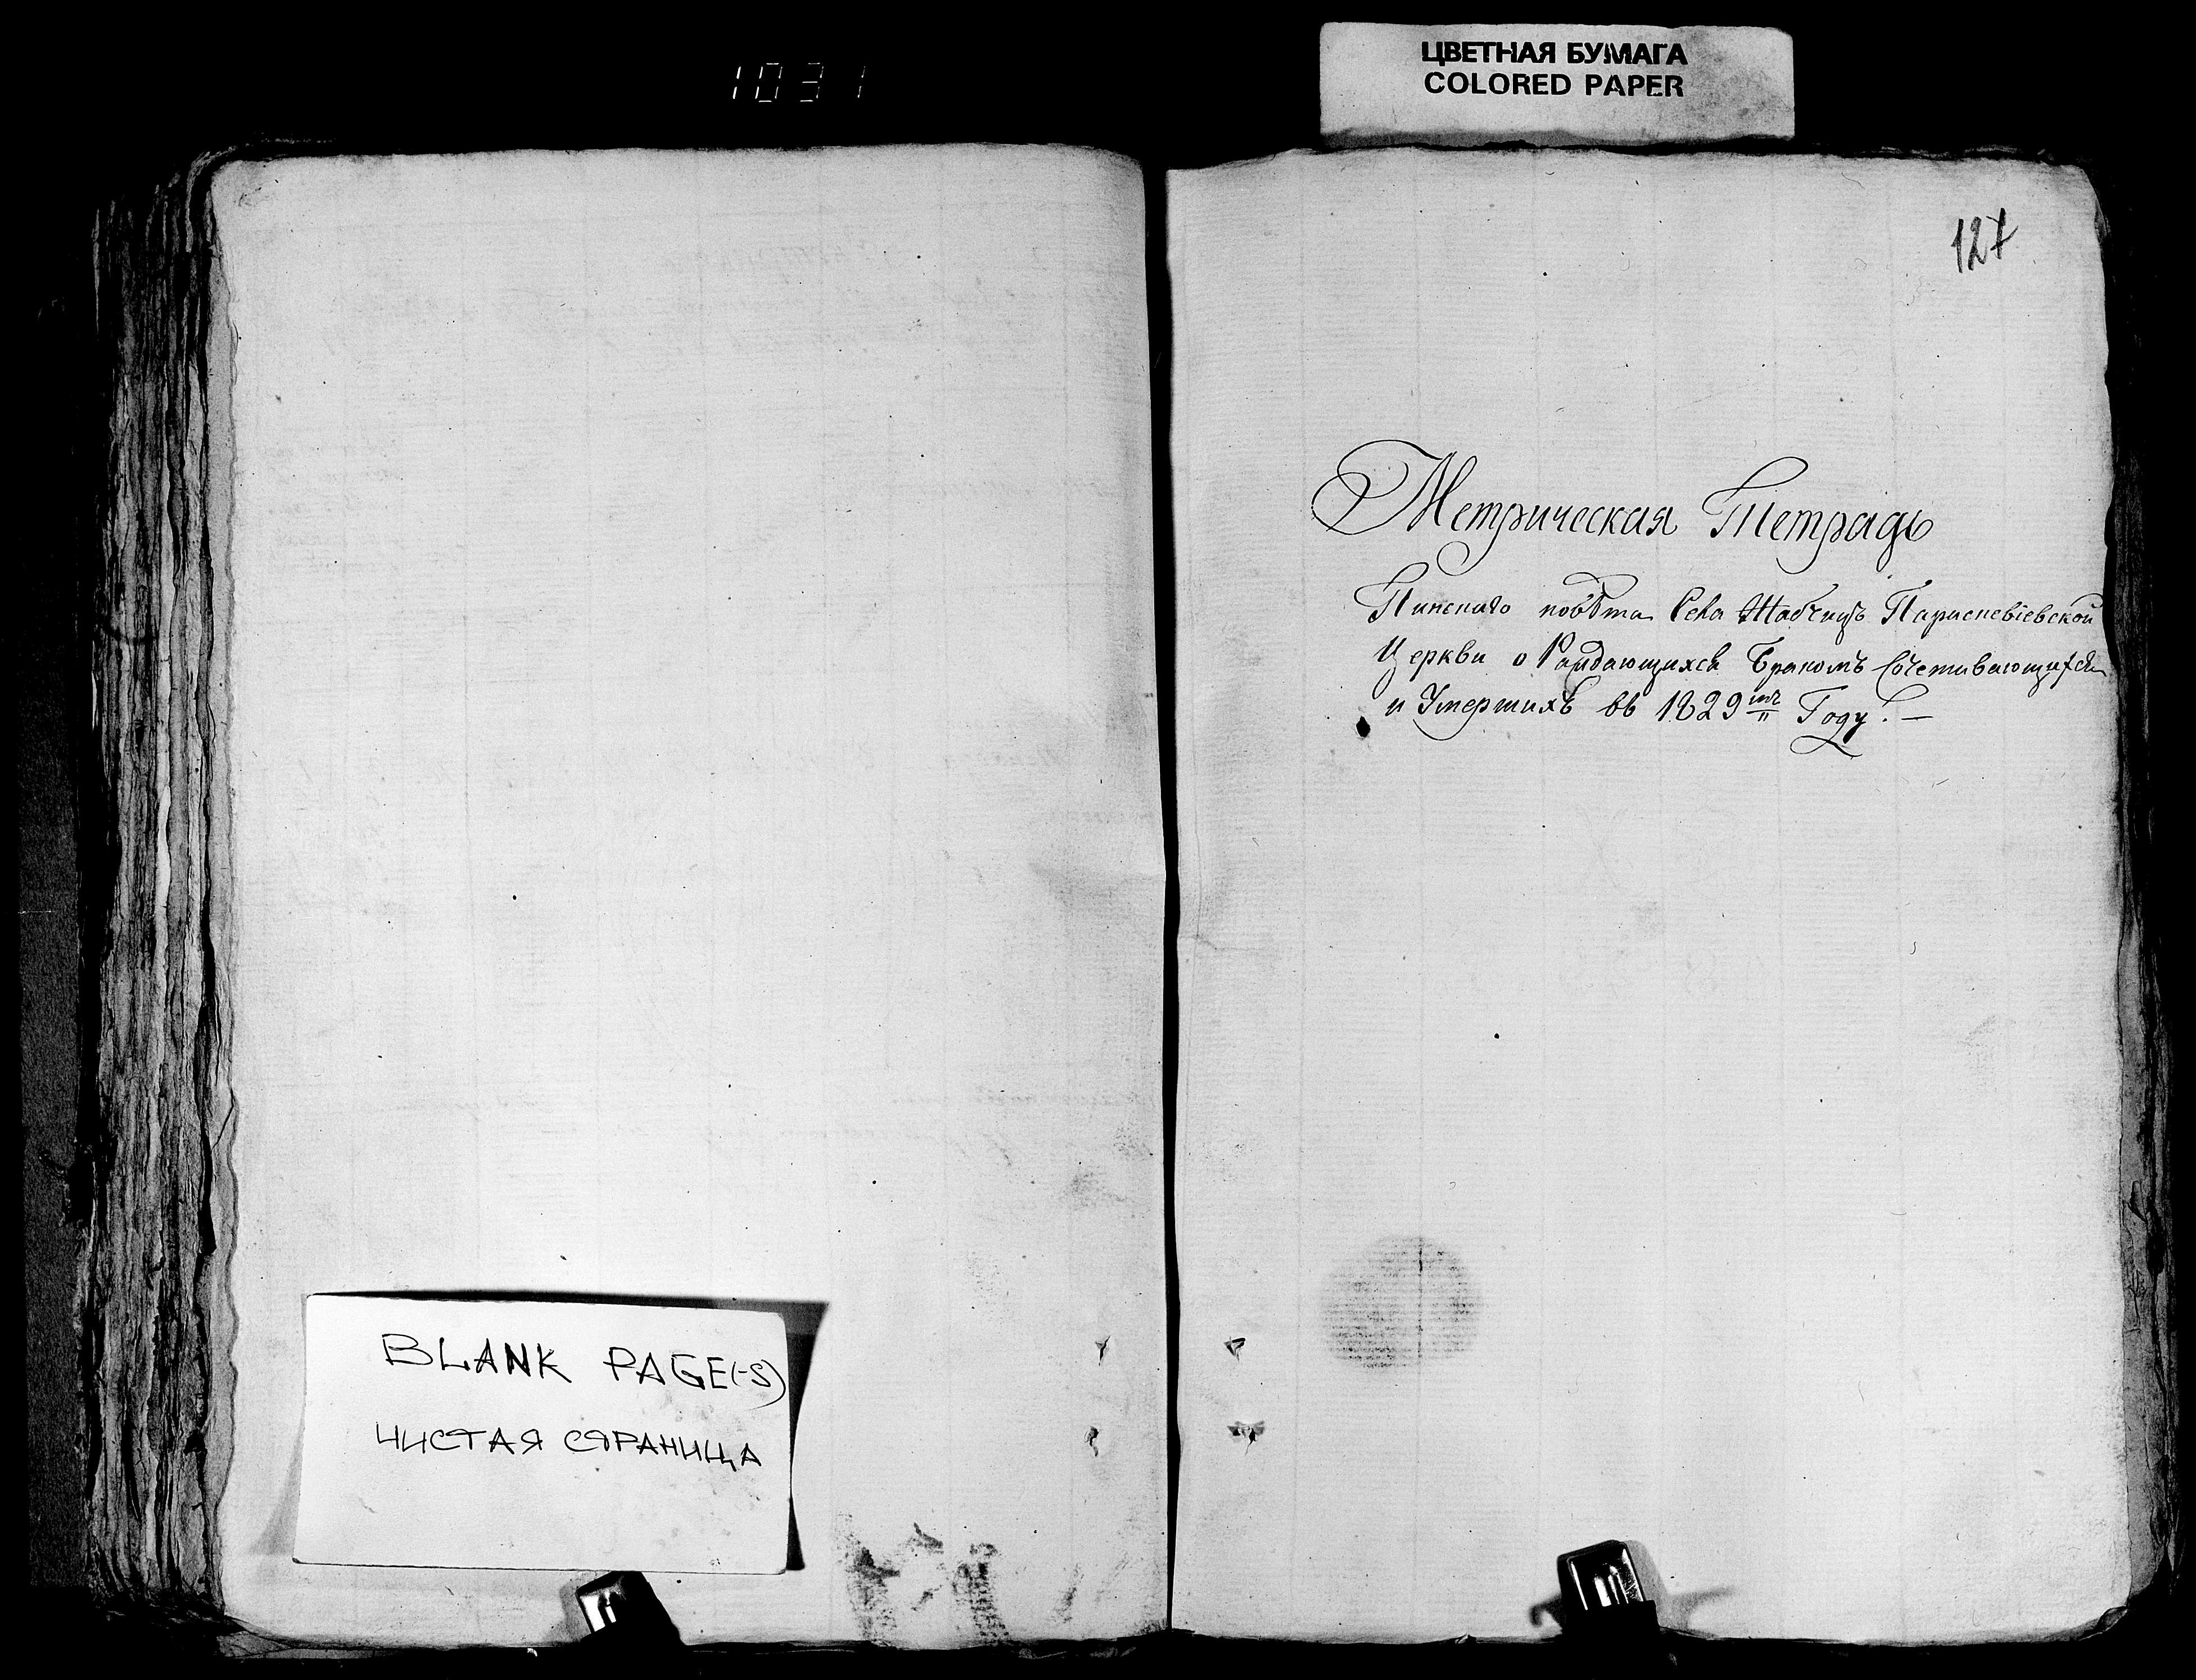 1031
ЦВЕТНАЯ БУМАГА
COLORED PAPER
127
Метрическая Тетрадь
Пинскаго повѣта Села Жабчицъ Параскевіевской
Церкви о Раждающихся Бракомъ Сочетавающихся
и Умершихъ въ 1829мъ Году. —
BLANK PAGE(-S)
ЧИСТАЯ СТРАНИЦА